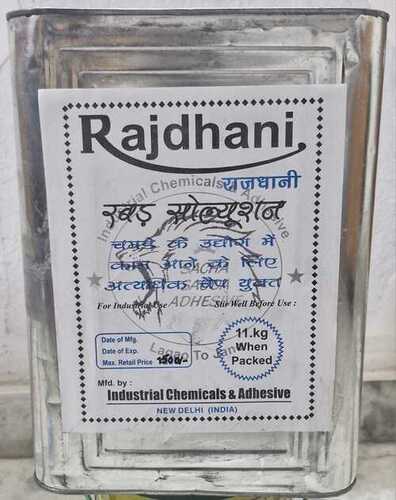 Rajdhani
राजधानी
Industrial Chemicals & Adhesive
रबड़ सोल्यूशन
चमड़े के उद्योग में
काम आने के लिए
अत्याधिक चैप युक्त
SACHA
ADHESIVE
For Industrial Use
Stir Well Before Use :
Lagao To Jano
Date of Mfg.
Date of Exp.
Max. Retail Price 1500/-
11.kg
When
Packed
Mfd. by :
Industrial Chemicals & Adhesive
NEW DELHI (INDIA)